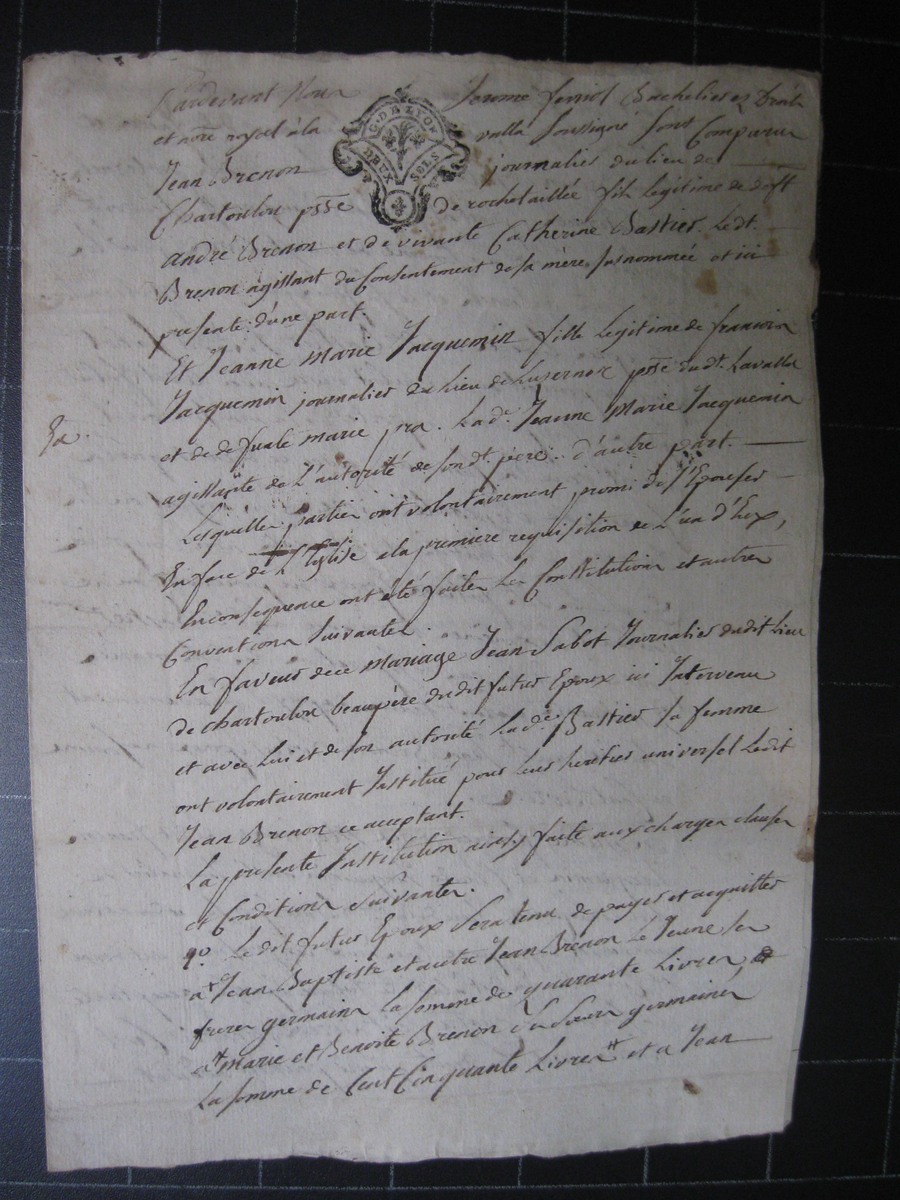 Pardevant Nous Jerome ferriol Bachelier es Droits
G. DE LYON
DEUX SOLS
et nore royal à la valla Soussigné Sont Comparus
Jean Brenon journalier du lieu de
Chartoulou psse de rochetaillée fils legitime de defft
André Brenon et de vivante Catherine Bastier. Ledt.
Brenon agissant du Consentement de sa mère susnommée et ici
presente d'une part.
Et Jeanne Marie Jacquemin fille legitime de francois
Jacquemin journalier du lieu de Luzernod psse dudt. Lavalla
et de defunte marie pra. Lade. Jeanne Marie Jacquemin
agissante de L'autorité de sondt. pere. d'autre part.
Lesquelles parties ont volontairement promi de s'Epouser
En face de L'Eglise a la premiere requisition de L'un d'Eux,
En consequence ont eté faites Les Constitutions et autres
Conventions Suivantes.
En faveur de ce Mariage Jean Sabot Journalier dudit Lieu
de chartoulou beaupère dudit futur Epoux ici Intervenu
et avec Lui et de son autorité Lade. Bastier sa femme
ont volontairement Institué pour leur heritier universel Ledit
Jean Brenon ce acceptant.
La presente Institution ainsy faite aux charges clauses
et Conditions Suivantes.
1º. Ledit futur Epoux Sera tenu de payer et acquitter
at. Jean Baptiste et autre Jean Brenon Le Jeune ses
freres germains La somme de quarante Livres,
at. Marie et Benoite Brenon ses Soeurs germaines
La somme de Cent Cinquante Livres tt et a Jean